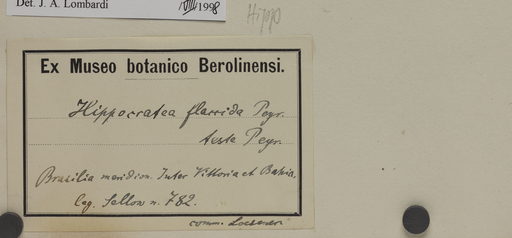 Det. J. A. Lombardi VIII/1998
Hippo
Ex Museo botanico Berolinensi.
Hippocratea flaccida Peyr.
teste Peyr.
Brasilia meridion. Inter Vittoria et Bahia,
leg. Sellow n. 782.
comm. Loesener